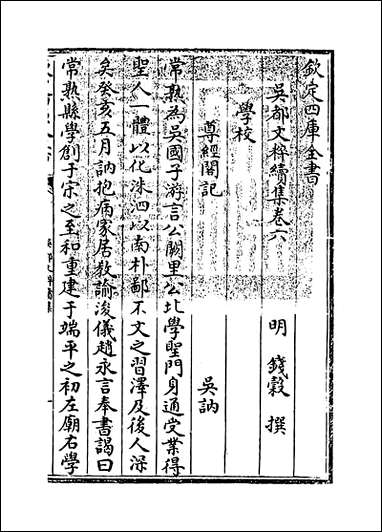 欽定四庫全書
吳都文粹續集卷六
明 錢穀 撰
學校
尊經閣記
吳訥
常熟為吳國子游言公闕里公北學聖門身通受業得
聖人一體以化洙泗以南朴鄙不文之習澤及後人深
矣癸亥五月訥抱病家居教諭浚儀趙永言奉書謁曰
常熟縣學創于宋之至和重建于端平之初左廟右學
吳都文粹續集